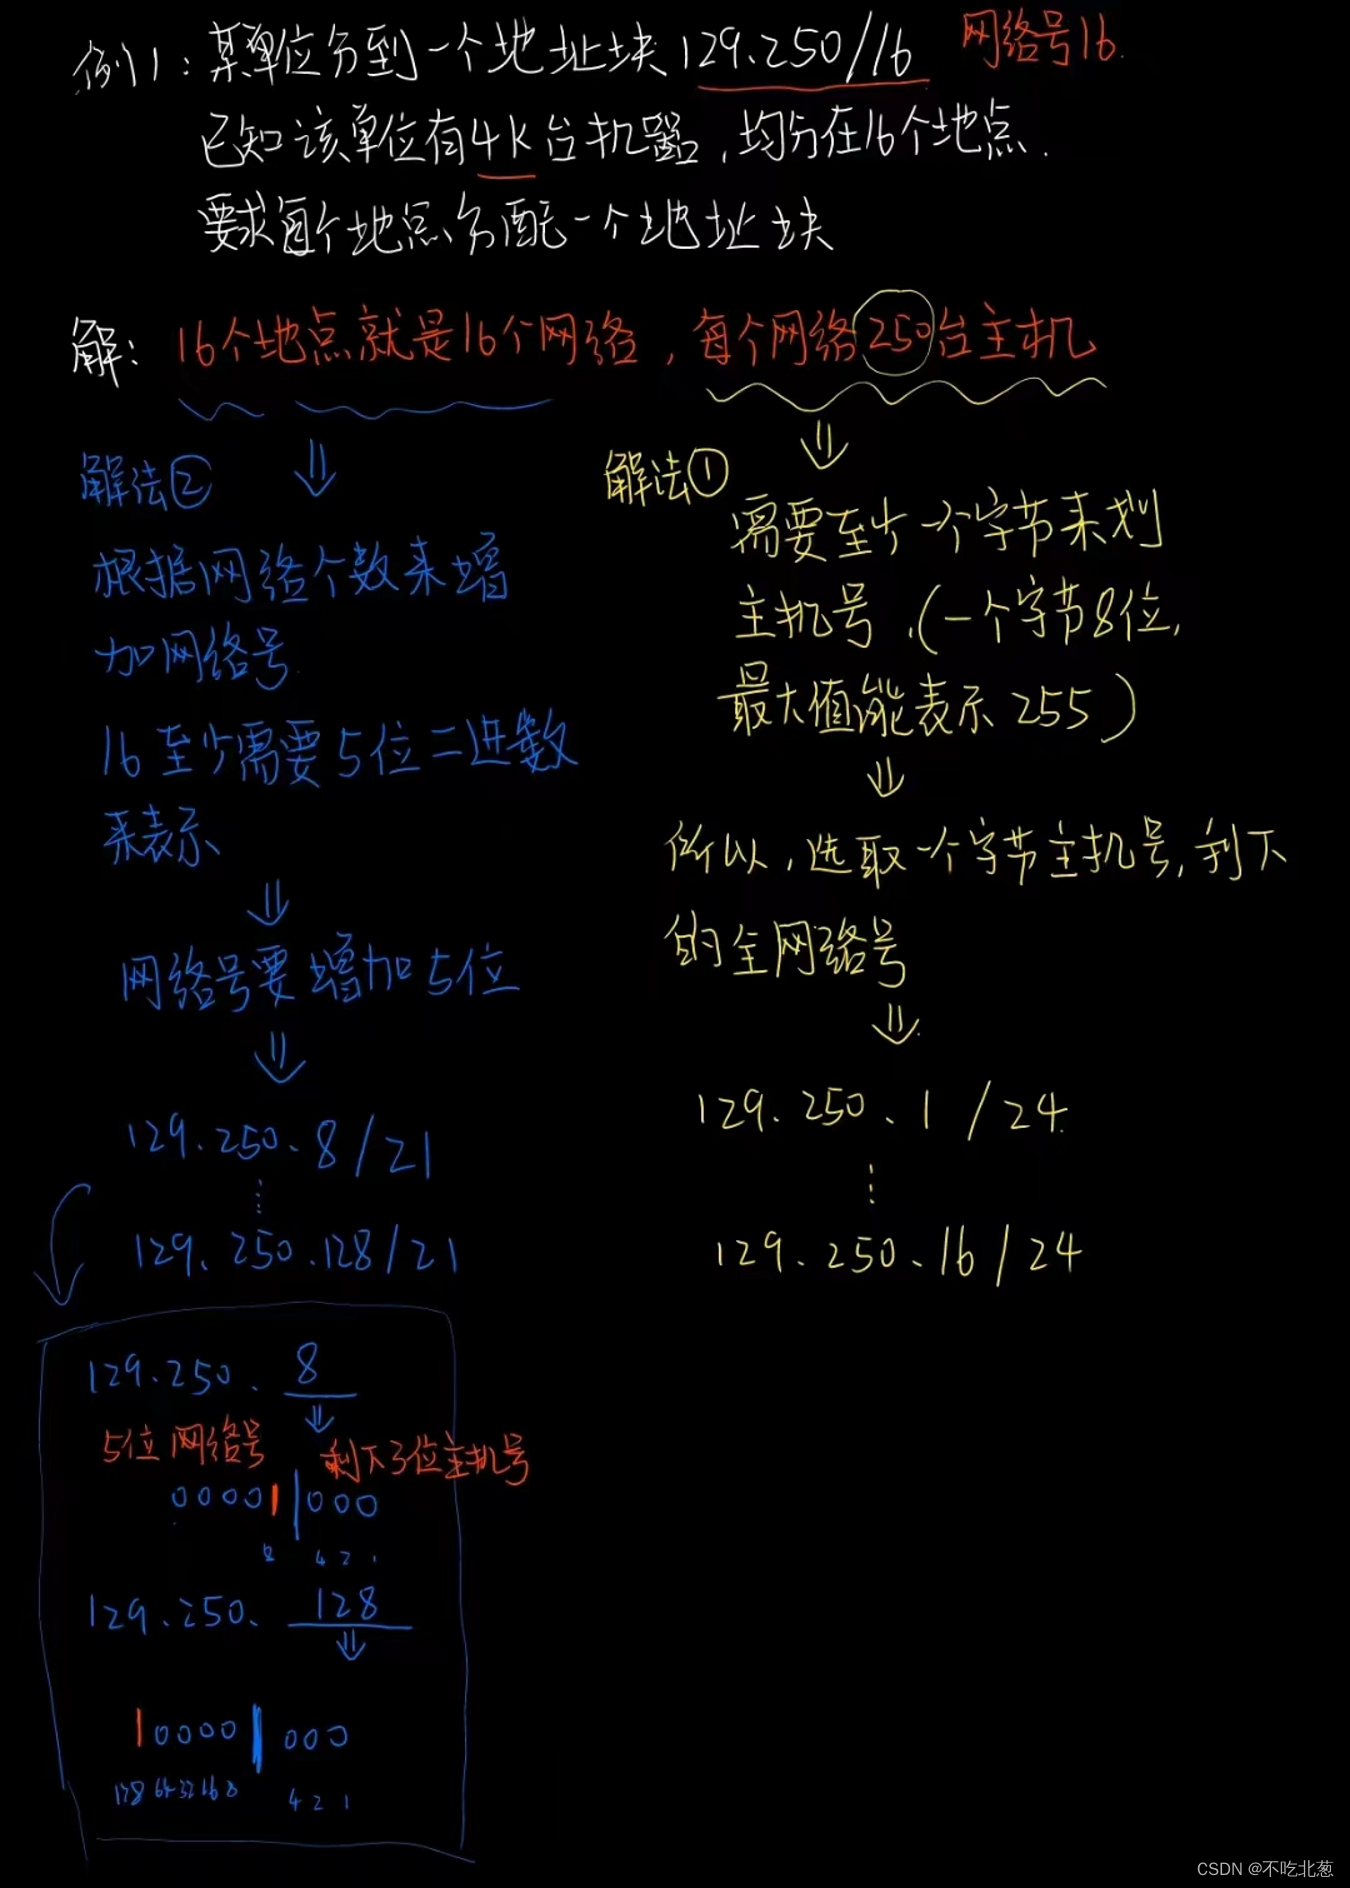 例1:某单位分到一个地址块129.250/16 网络号16.
已知该单位有4k台机器,均分在16个地点.
要求每个地点分配一个地址块
解: 16个地点就是16个网络,每个网络250台主机
解法②
根据网络个数来增
加网络号.
16至少需要5位二进数
来表示
网络号要增加5位
129.250.8/21
⋮
129.250.128/21
解法①
需要至少一个字节来划
主机号.(一个字节8位,
最大值能表示255)
所以,选取一个字节主机号,利下
的全网络号
129.250.1/24
⋮
129.250.16/24
129.250.8
5位网络号 剩下3位主机号
00001|000
8 4 2 1
129.250.128
10000|000
128 64 32 16 8 4 2 1
CSDN @不吃北葱